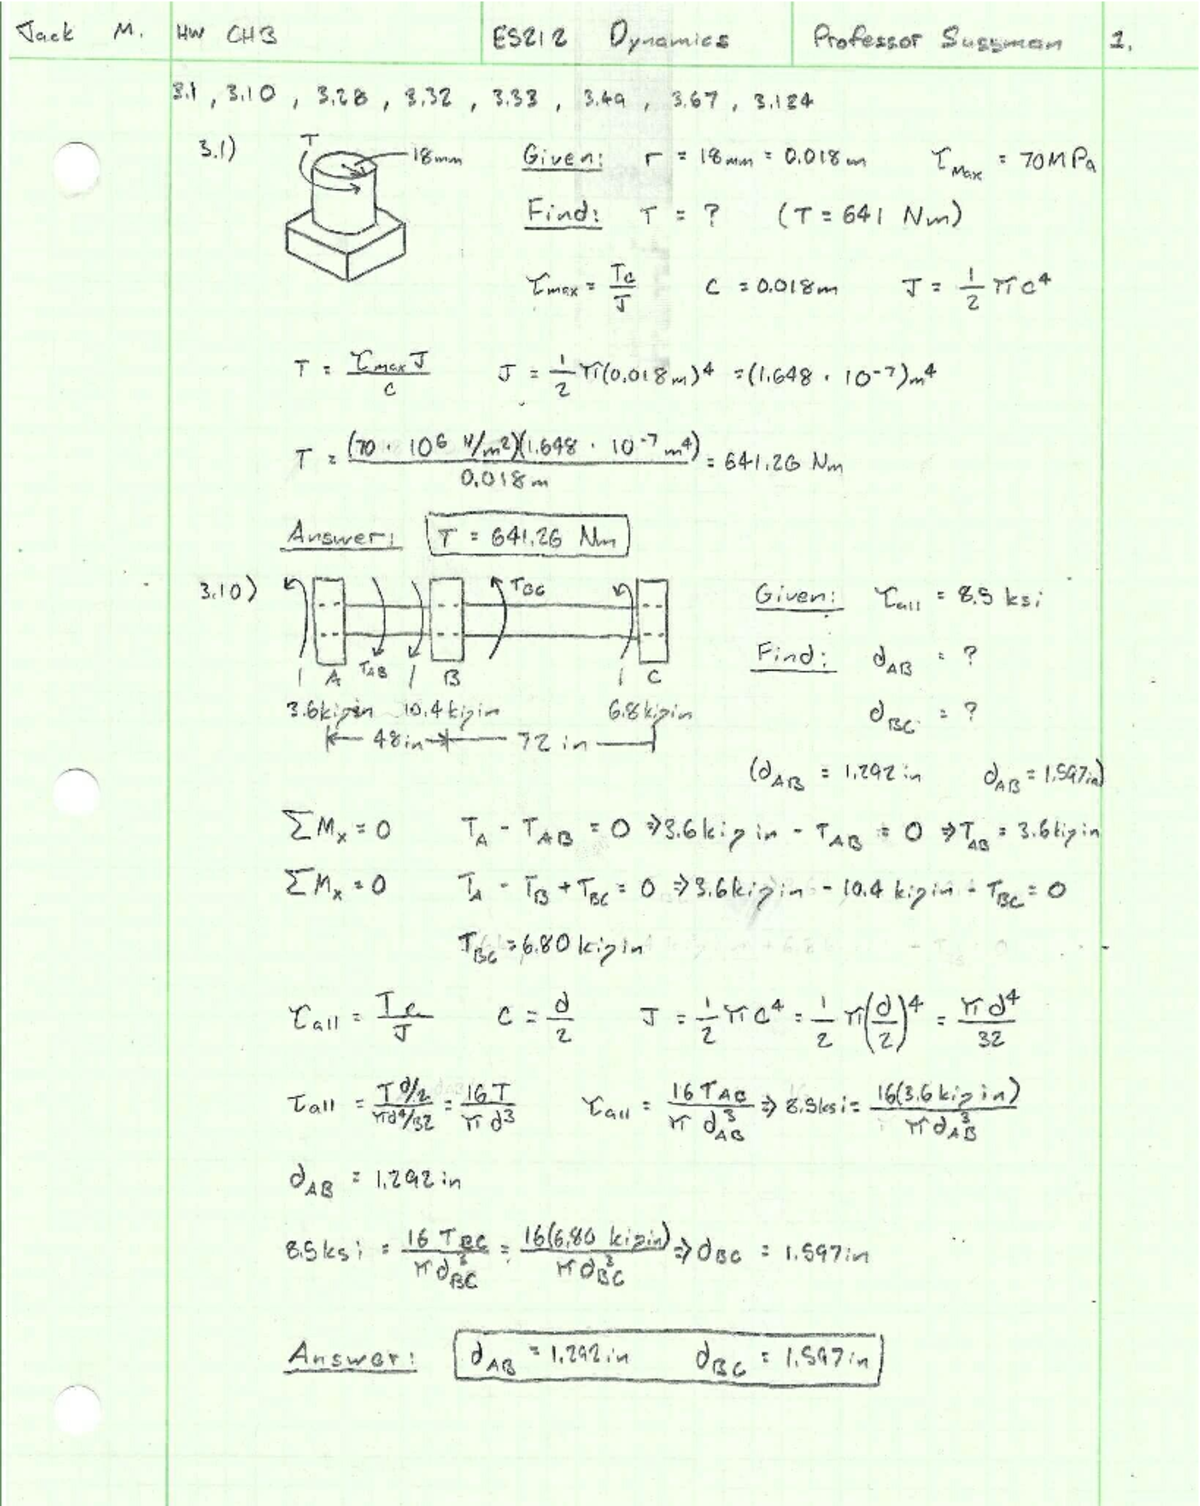 Jack M. HW CH3 ES212 Dynamics Professor Sussman 1.
3.1 , 3.10 , 3.28 , 3.32 , 3.33 , 3.49 , 3.67 , 3.124
3.1) T 18mm Given: r = 18mm = 0.018m τMax = 70MPa
Find: T = ? (T = 641 Nm)
τmax = Tc/J C = 0.018m J = 1/2 πc⁴
T = τmax J/c J = 1/2 π(0.018m)⁴ = (1.648 · 10⁻⁷)m⁴
T = (70 · 10⁶ N/m²)(1.648 · 10⁻⁷ m⁴)/0.018m = 641.26 Nm
Answer: T = 641.26 Nm
3.10) TBC Given: τall = 8.5 ksi
A TAB B C Find: dAB = ?
3.6kipin 10.4kipin 6.8kipin dBC = ?
48in 72 in
(dAB = 1.292 in dAB = 1.597in)
ΣMx = 0 TA - TAB = 0 ⇒ 3.6kipin - TAB = 0 ⇒ TAB = 3.6kipin
ΣMx = 0 TA - TB + TBC = 0 ⇒ 3.6kipin - 10.4 kipin - TBC = 0
TBC = 6.80 kipin
τall = Tc/J C = d/2 J = 1/2 πc⁴ = 1/2 π(d/2)⁴ = πd⁴/32
τall = T d/2 / πd⁴/32 = 16T/πd³ τall = 16TAB/πdAB³ ⇒ 8.5ksi = 16(3.6kipin)/πdAB³
dAB = 1.292in
8.5ksi = 16TBC/πdBC³ = 16(6.80 kipin)/πdBC³ ⇒ dBC = 1.597in
Answer: dAB = 1.292in dBC = 1.597in